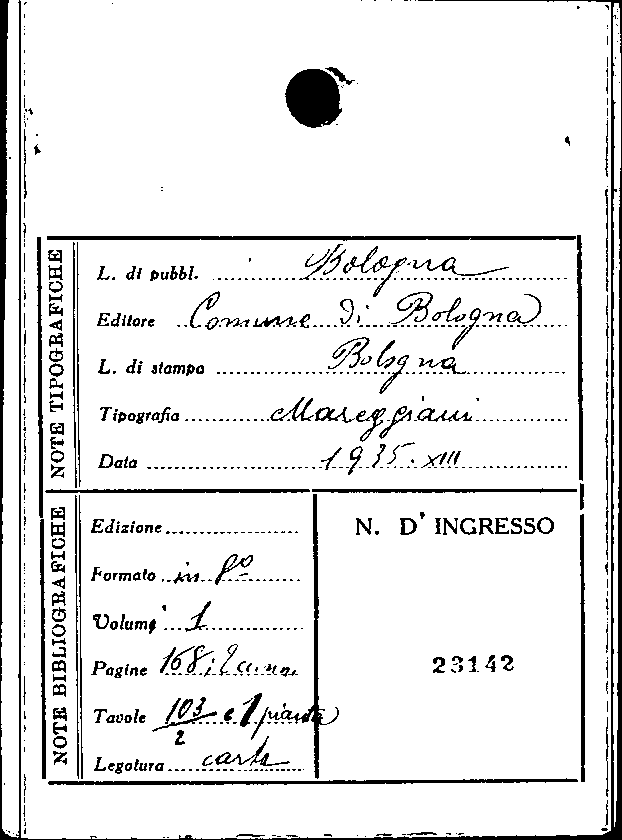 NOTE TIPOGRAFICHE
L. di pubbl. Bologna
Editore Comune di Bologna
L. di stampa Bologna
Tipografia Mareggiani
Data 1935. XIII
NOTE BIBLIOGRAFICHE
Edizione
Formato in 8º
Volumi 1
Pagine 168;
Tavole 103/2 e 1 pianta
Legatura carta
N. D' INGRESSO
23142